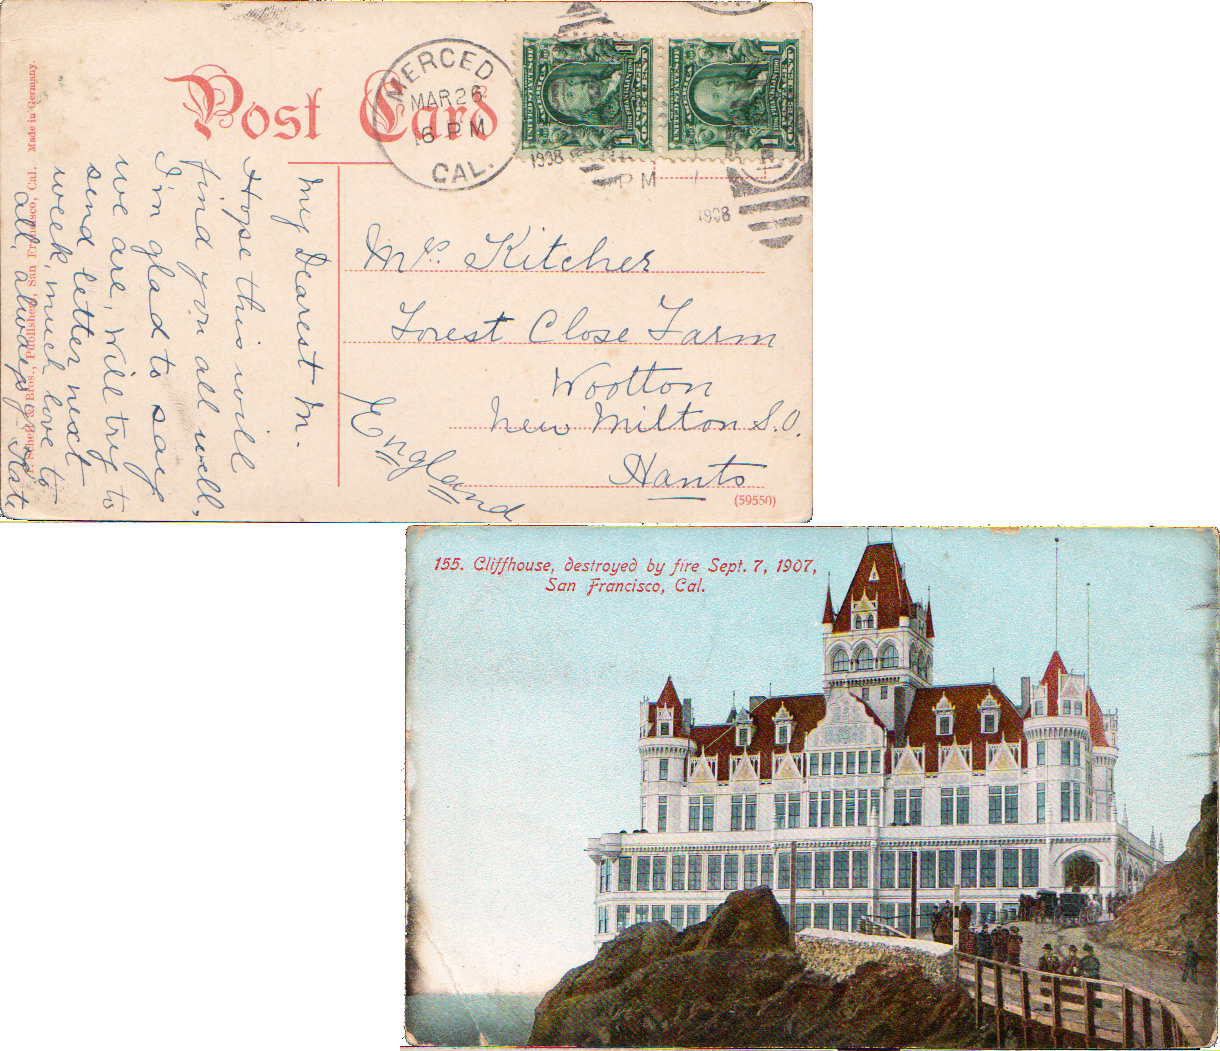 Post Card
MERCED
MAR 26
6 PM
CAL.
1908
PM
1908
UNITED STATES OF AMERICA
1
1
UNITED STATES OF AMERICA
1
1
My Dearest M.
Hope this will
find you all well,
I'm glad to say
we are, Will try to
send letter next
week, much love to
all, always yours
Kate
Bros., Publishers, San Francisco, Cal. Made in Germany.
Mr. Kitcher
Forest Close Farm
Wootton
New Milton S.O.
Hants
England
(59550)
155. Cliffhouse, destroyed by fire Sept. 7, 1907,
San Francisco, Cal.